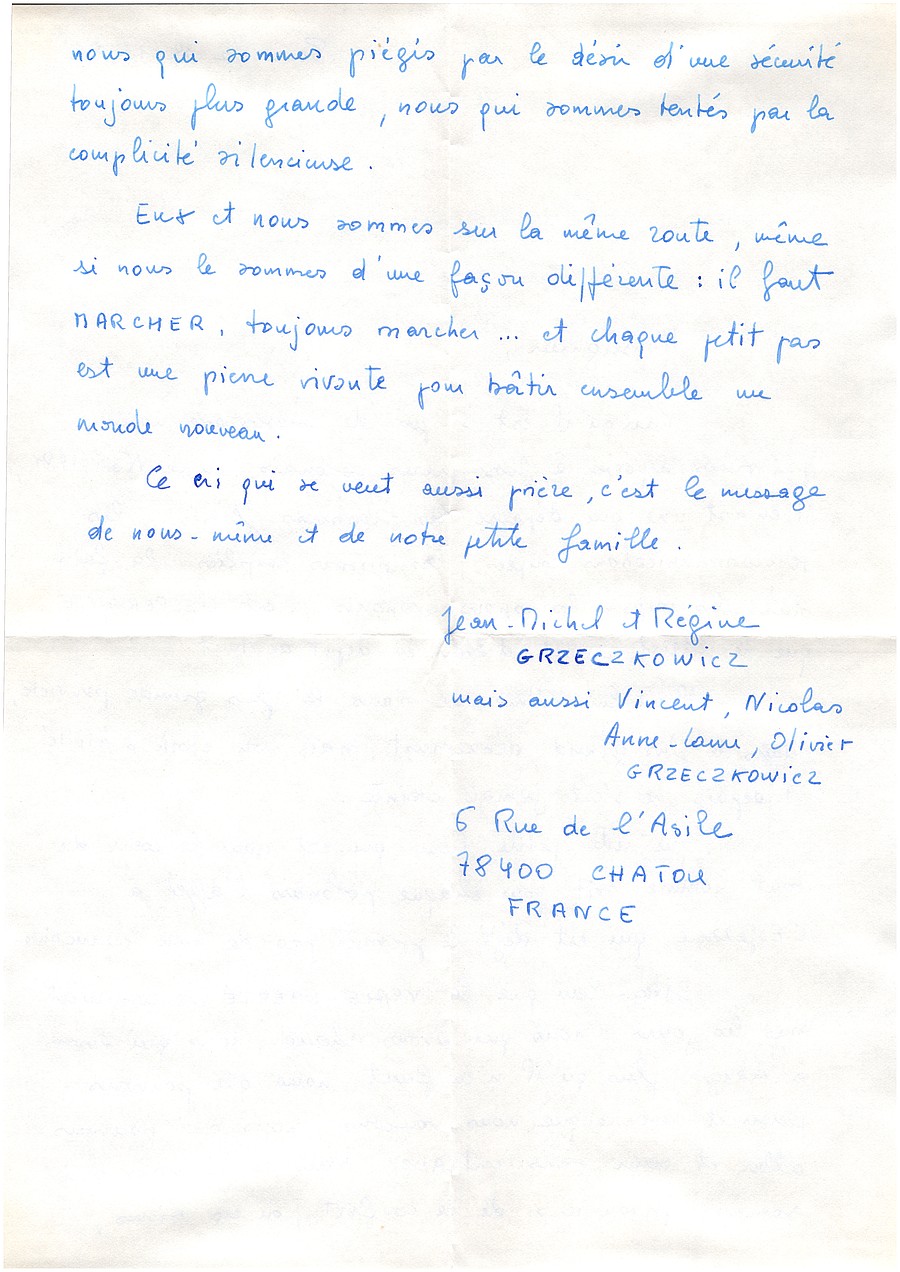 nous qui sommes piégés par le désir d'une sécurité
toujours plus grande, nous qui sommes tentés par la
complicité silencieuse.
Eux et nous sommes sur la même route, même
si nous le sommes d'une façon différente : il faut
MARCHER, toujours marcher ... et chaque petit pas
est une pierre vivante pour bâtir ensemble un
monde nouveau.
Ce cri qui se veut aussi prière, c'est le message
de nous-même et de notre petite famille.
Jean-Michel et Régine
GRZECZKOWICZ
mais aussi Vincent, Nicolas
Anne-Laure, Olivier
GRZECZKOWICZ
6 Rue de l'Asile
78400 CHATOU
FRANCE